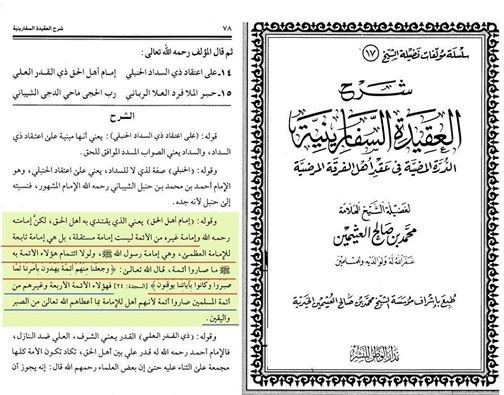 ٧٨
شرح العقيدة السفارينية
ثم قال المؤلف رحمه الله تعالى:
١٤-على اعتقاد ذي السداد الحنبلي إمام أهل الحق ذي القدر العلي
١٥-حبر الملا فرد العلا الرباني رب الحجى ماحي الدجى الشيباني
الشرح
قوله: (على اعتقاد ذي السداد الحنبلي): يعني أنها مبنية على اعتقاد ذي
السداد، والسداد يعني الصواب المسدد الموافق للحق.
وقوله: (الحنبلي) صفة لذي لا للسداد، يعني على اعتقاد الحنبلي، وهو
الإمام أحمد بن محمد بن حنبل الشيباني رحمه الله الإمام المشهور، فنسبته
إلى حنبل لأنه جده.
وقوله: (إمام أهل الحق) يعني الذي يقتدي به أهل الحق، لكن إمامته
رحمه الله وإمامة غيره من الأئمة ليست إمامة مستقلة، بل هي إمامة تابعة
للإمامة العظمى، وهي إمامة رسول الله ﷺ، ولولا ائتمام هؤلاء الأئمة به
ﷺ ما صاروا أئمة، قال الله تعالى: ﴿وجعلنا منهم أئمة يهدون بأمرنا لما
صبروا وكانوا بآياتنا يوقنون﴾ [السجدة: ٢٤] فهؤلاء الأئمة الأربعة وغيرهم من
أئمة المسلمين صاروا أئمة لأنهم أهل للإمامة بما أعطاهم الله تعالى من الصبر
واليقين.
وقوله: (ذي القدر العلي) القدر يعني الشرف، العلي ضد النازل،
فالإمام أحمد رحمه الله له قدر علي بين أهل الحق، تكاد تكون الأمة كلها
مجمعة على الثناء عليه حتى إن بعض العلماء رحمهم الله قال: إنه يجوز أن
سلسلة مؤلفات فضيلة الشيخ (١٧)
شرح
العقيدة السفارينية
الدرة المضية في عقد أهل الفرقة المرضية
لفضيلة الشيخ العلامة
محمد بن صالح العثيمين
غفر الله له ولوالديه وللمسلمين
طبع بإشراف مؤسسة الشيخ محمد بن صالح العثيمين الخيرية
مدار الوطن للنشر